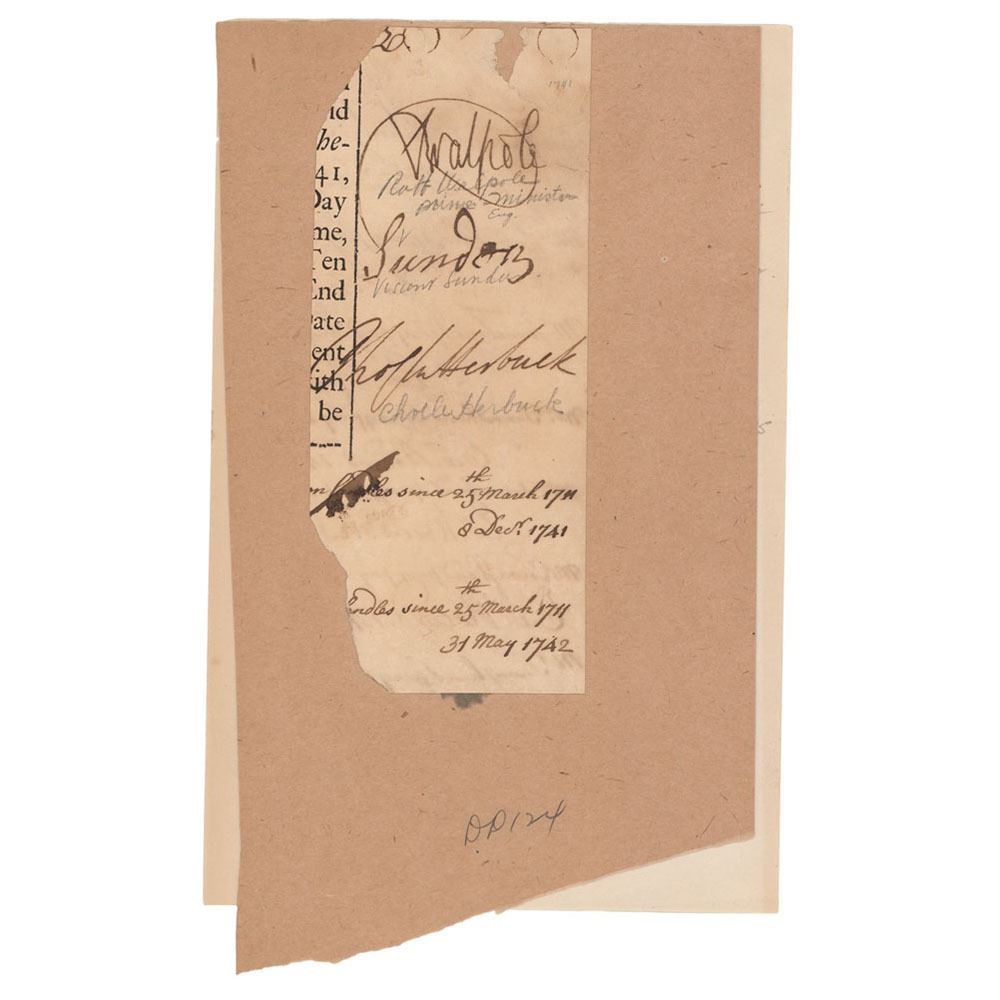 20.
1741
id
he-
41,
Day
me,
Ten
End
ate
ent
ith
be
RWalpole
Robt Walpole
prime-Minister
Eng.
Sundon
Viscont Sundon
Herbuck
Herbuck
since 25th March 1711
8 Decr. 1741
ndles since 25th March 1711
31 May 1742
DD124
5